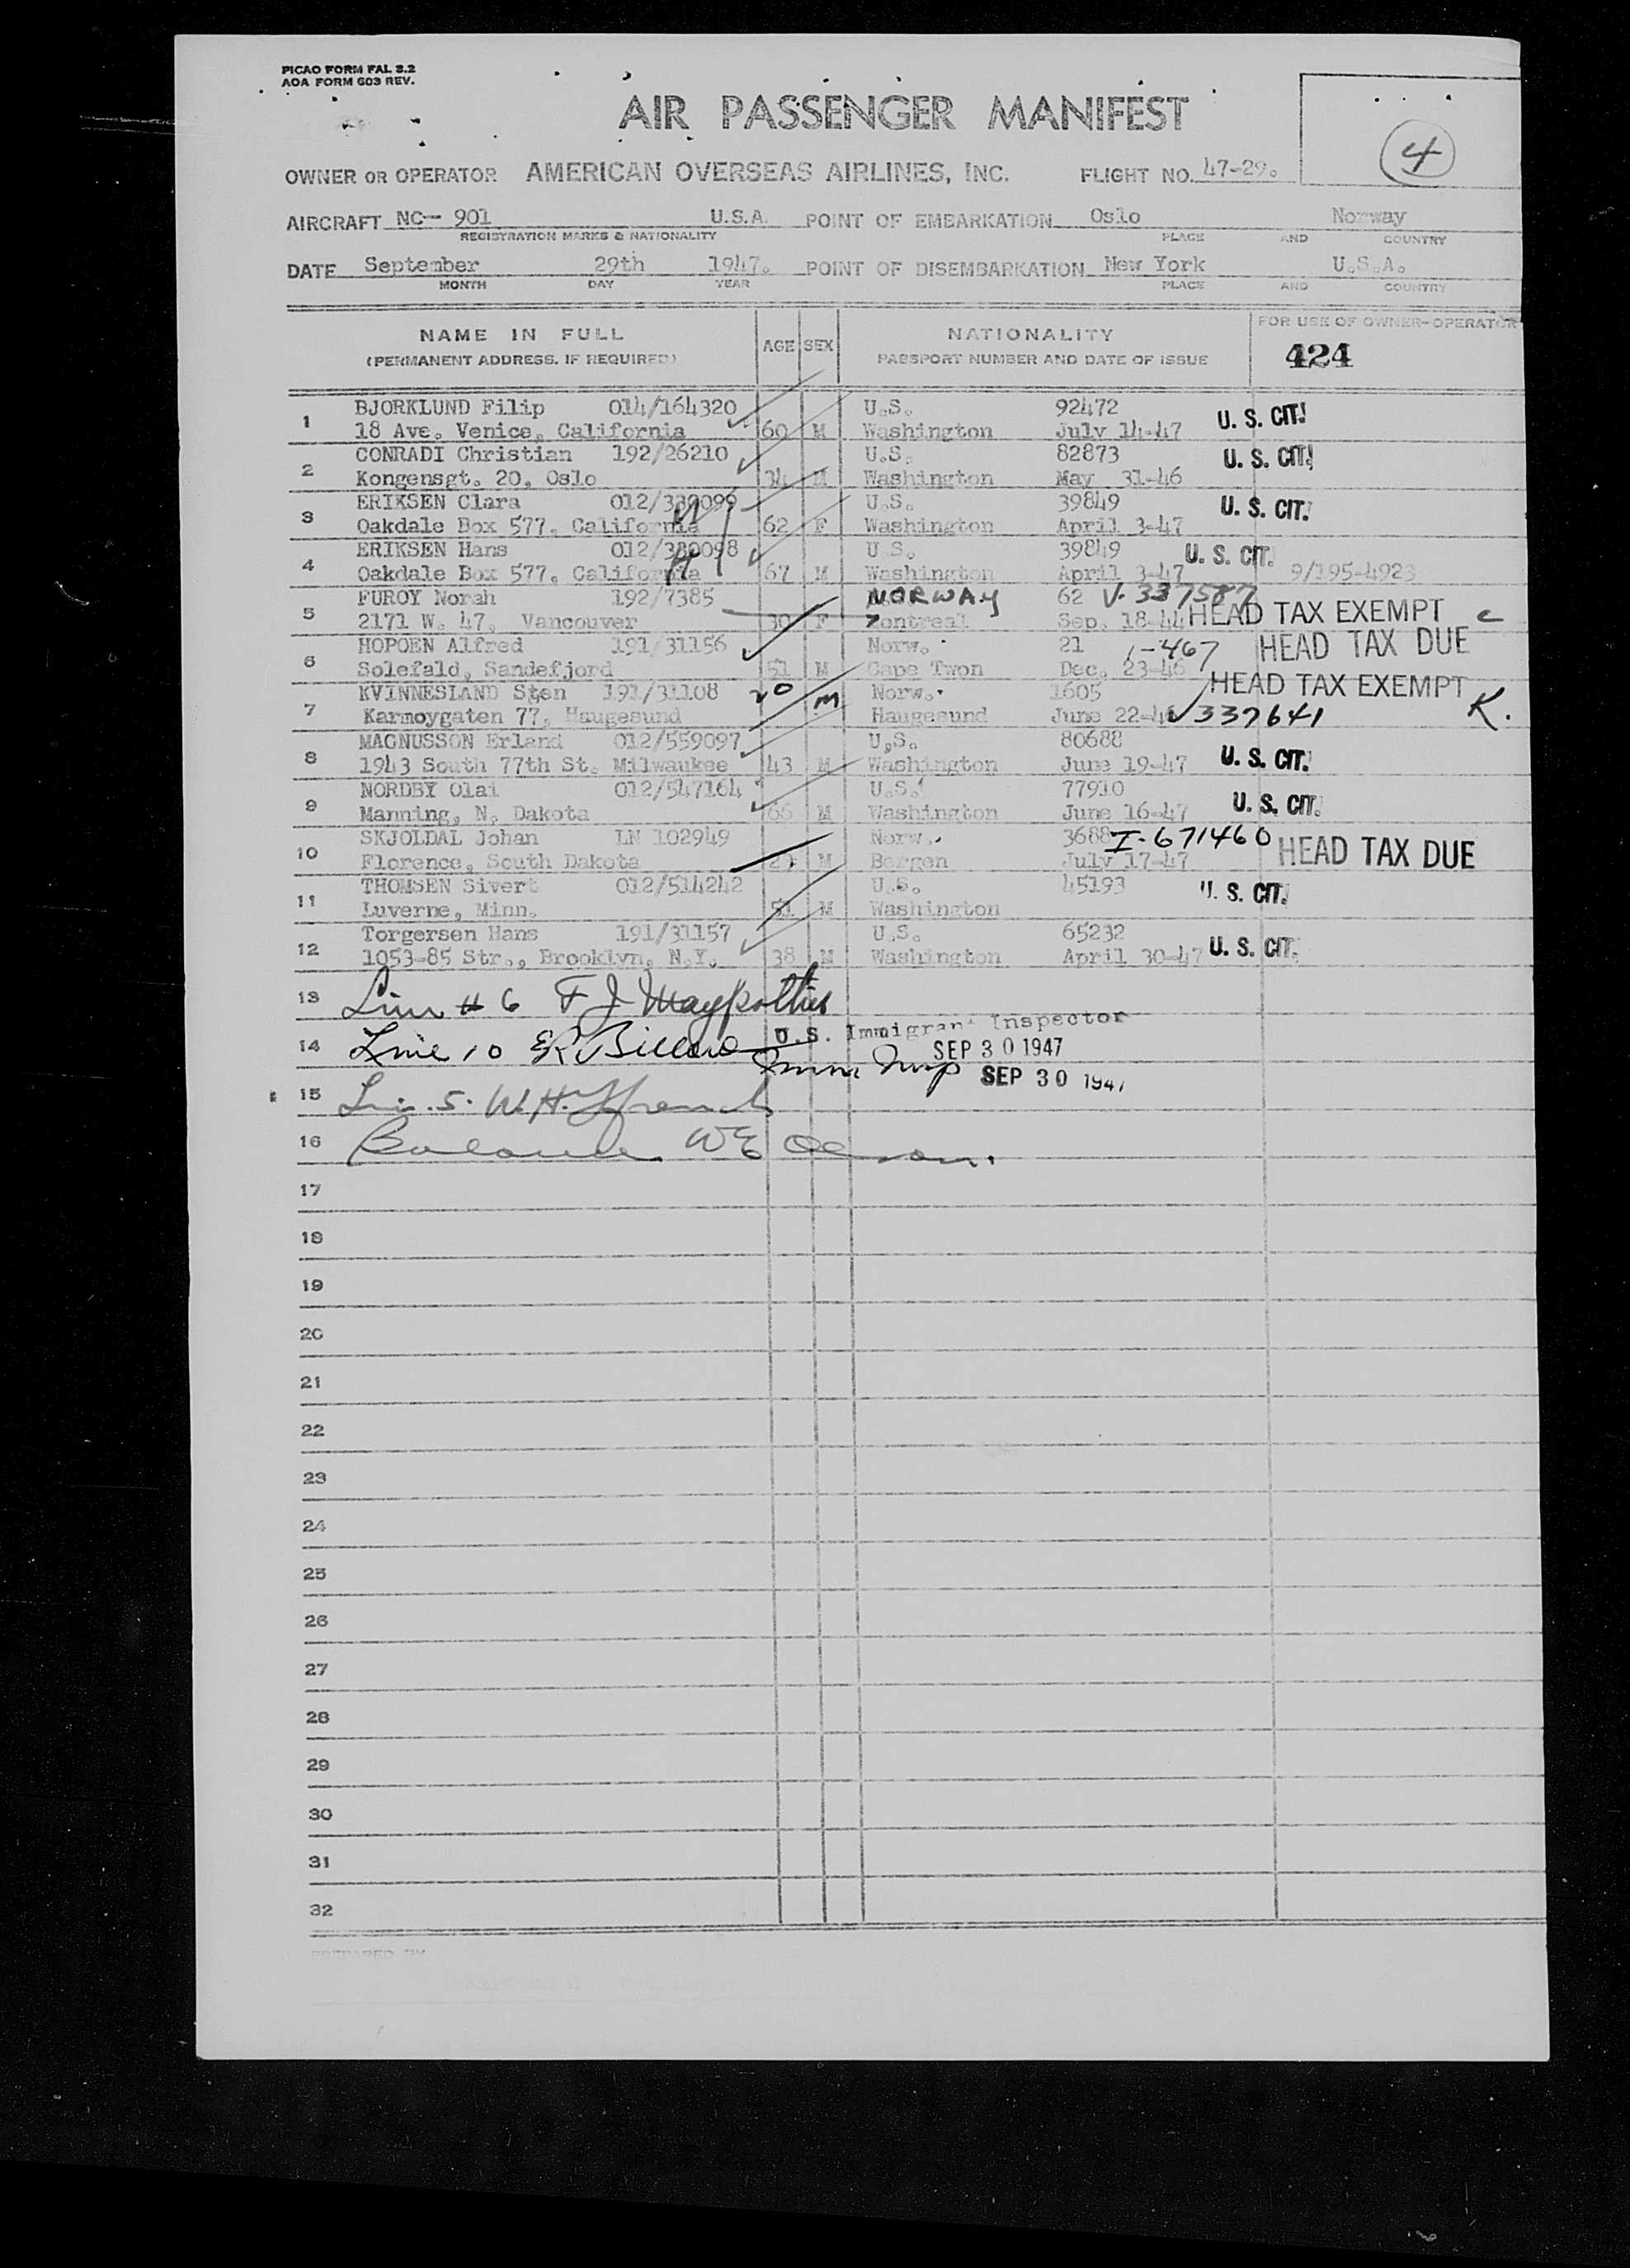 PICAO FORM FAL 3.2
AOA FORM 603 REV.
AIR PASSENGER MANIFEST
4
OWNER OR OPERATOR AMERICAN OVERSEAS AIRLINES, INC. FLIGHT NO. 47-29.
AIRCRAFT NC- 901 U.S.A. POINT OF EMBARKATION Oslo Norway
REGISTRATION MARKS & NATIONALITY PLACE AND COUNTRY
DATE September 29th 1947. POINT OF DISEMBARKATION New York U.S.A.
MONTH DAY YEAR PLACE AND COUNTRY
NAME IN FULL AGE SEX NATIONALITY FOR USE OF OWNER-OPERATOR
(PERMANENT ADDRESS, IF REQUIRED) PASSPORT NUMBER AND DATE OF ISSUE 424
1 BJORKLUND Filip 014/164320 U.S. 92472 U. S. CIT.
18 Ave. Venice, California 60 M Washington July 14-47
2 CONRADI Christian 192/26210 U.S. 82873 U. S. CIT.
Kongensgt. 20, Oslo 34 M Washington May 31-46
3 ERIKSEN Clara 012/380099 U.S. 39849 U. S. CIT.
Oakdale Box 577, California 62 F Washington April 3-47
4 ERIKSEN Hans 012/380098 U.S. 39849 U. S. CIT.
Oakdale Box 577, California 67 M Washington April 3-47 9/195-4923
5 FUROY Norah 192/7385 NORWAY 62 V-337587 HEAD TAX EXEMPT c
2171 W. 47, Vancouver 30 F Montreal Sep. 18-44
6 HOPOEN Alfred 191/31156 Norw. 21 1-467 HEAD TAX DUE
Solefald, Sandefjord 51 M Cape Twon Dec. 23-46
7 KVINNESLAND Sten 191/31108 20 M Norw. 1605 HEAD TAX EXEMPT
Karmoygaten 77, Haugesund Haugesund June 22-46 V337641 K.
8 MAGNUSSON Erland 012/559097 U.S. 80688 U. S. CIT.
1943 South 77th St. Milwaukee 43 M Washington June 19-47
9 NORDBY Olai 012/547164 U.S. 77910 U. S. CIT.
Manning, N. Dakota 66 M Washington June 16-47
10 SKJOLDAL Johan LN 102949 Norw. 3688 I-671460 HEAD TAX DUE
Florence, South Dakota M Bergen July 17-47
11 THOMSEN Sivert 012/514242 U.S. 45193 U. S. CIT.
Luverne, Minn. 51 M Washington
12 Torgersen Hans 191/31157 U.S. 65232 U. S. CIT.
1053-85 Str., Brooklyn, N.Y. 38 M Washington April 30-47
13 Line # 6 F J
U.S. Immigrant Inspector
14 Line 10 SEP 30 1947
Imm Insp SEP 30 1947
15 Lin. 5. W.H. French
16 Balance WE Olson.
17
18
19
20
21
22
23
24
25
26
27
28
29
30
31
32
PREPARED BY